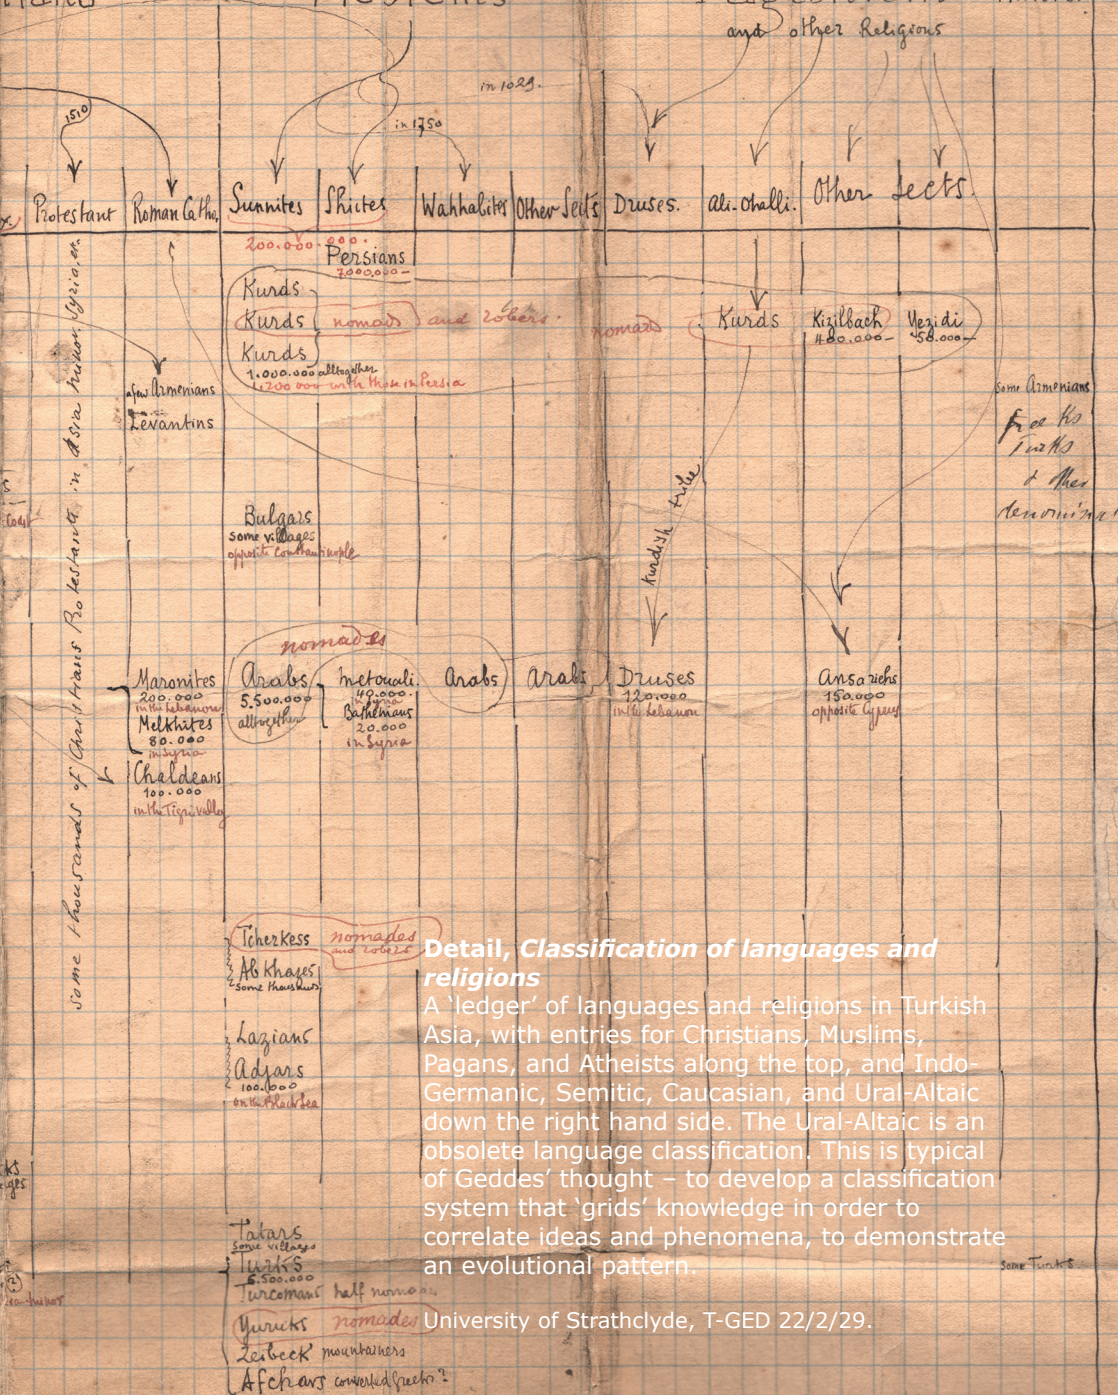 and other Religions
in 1029.
1510
in 1750
Protestant
Roman Catho.
Sunnites
Shiites
Wahhabites
Other Sects
Druses.
Ali-Ohalli.
Other Sects.
200.000.000.
Persians
7000.000-
Kurds
Kurds nomads and robers.
nomads
Kurds
Kizilbach
400.000-
Yezidi
50.000-
Kurds
1.000.000 alltogether
1.200 000 with those in Persia
a few Armenians
Levantins
some Armenians
Turks
& other
Some thousands of Christians Protestants in Asia minor, Syria,
Bulgars
some villages
opposite Constantinople
Kurdish tribe
nomades
Maronites
200.000
in the Lebanon
Melkhites
80.000
in Syria
Chaldeans
100.000
in the Tigris valley
Arabs
5.500.000
alltogether
Metouali
40.000.
in Syria
Bathenians
20.000
in Syria
Arabs
Arabs
Druses
120.000
in the Lebanon
Ansariehs
150.000
opposite Cyprus
Tcherkess nomades
and robers
Abkhazes
some thousands
Lazians
Adjars
100.000
on the Black Sea
Tatars
some villages
Turks
6.500.000
Turcomans half nomads
Yuruks nomades
Zeibeck mountainers
Afchars converted Greeks?
some Turks
Detail, Classification of languages and
religions
A ‘ledger’ of languages and religions in Turkish
Asia, with entries for Christians, Muslims,
Pagans, and Atheists along the top, and Indo-
Germanic, Semitic, Caucasian, and Ural-Altaic
down the right hand side. The Ural-Altaic is an
obsolete language classification. This is typical
of Geddes’ thought – to develop a classification
system that ‘grids’ knowledge in order to
correlate ideas and phenomena, to demonstrate
an evolutional pattern.
University of Strathclyde, T-GED 22/2/29.